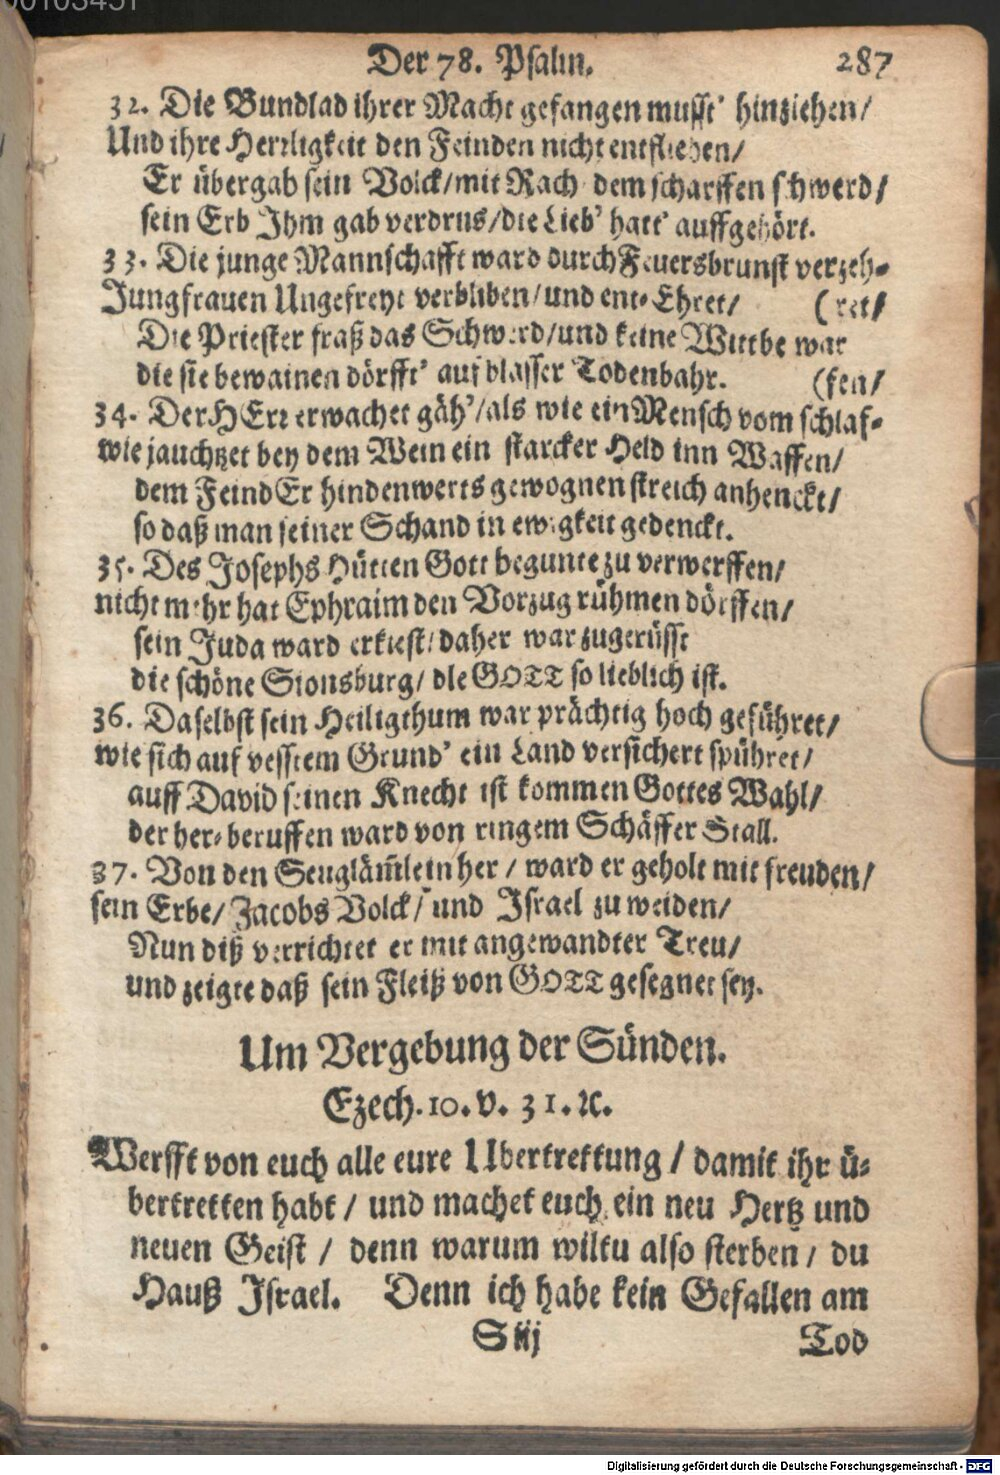 00103451
Der 78. Psalm. 287
32. Die Bundlad ihrer Macht gefangen musst' hinziehen/
Und ihre Herrligkeit den Feinden nicht entfliehen/
Er übergab sein Volck/mit Rach dem scharffen schwerd/
sein Erb Ihm gab verdrus/die Lieb' hatt' auffgehört.
33. Die junge Mannschafft ward durch Feuersbrunst verzeh-
Jungfrauen Ungefreyt verbliben/und ent-Ehret/ (ret/
Die Priester fraß das Schwerd/und keine Wittbe war
die sie bewainen dörfft' auf blasser Todenbahr. (fen/
34. Der HErr erwachet gäh'/als wie ein Mensch vom schlaf-
wie jauchtzet bey dem Wein ein starcker Held inn Waffen/
dem Feind Er hindenwerts gewognen streich anhenckt/
so daß man seiner Schand in ewigkeit gedenckt.
35. Des Josephs Hütten Gott begunte zu verwerffen/
nicht mehr hat Ephraim den Vorzug rühmen dörffen/
sein Juda ward erkiest/daher war zugerüsst
die schöne Sionsburg/ die GOTT so lieblich ist.
36. Daselbst sein Heiligthum war prächtig hoch geführet/
wie sich auf vesstem Grund' ein Land versichert spühret/
auff David seinen Knecht ist kommen Gottes Wahl/
der her-beruffen ward von ringem Schäffer Stall.
37. Von den Seuglām̃lein her / ward er geholt mit freuden/
sein Erbe/ Jacobs Volck/ und Israel zu weiden/
Nun diß verrichtet er mit angewandter Treu/
und zeigte daß sein Fleiß von GOTT gesegnet sey.
Um Vergebung der Sünden.
Ezech. 10. v. 31. ꝛc.
Werfft von euch alle eure Ubertrettung / damit ihr ü-
bertretten habt / und machet euch ein neu Hertz und
neuen Geist / denn warum wiltu also sterben / du
Hauß Israel. Denn ich habe kein Gefallen am
S iij Tod
Digitalisierung gefördert durch die Deutsche Forschungsgemeinschaft - DFG